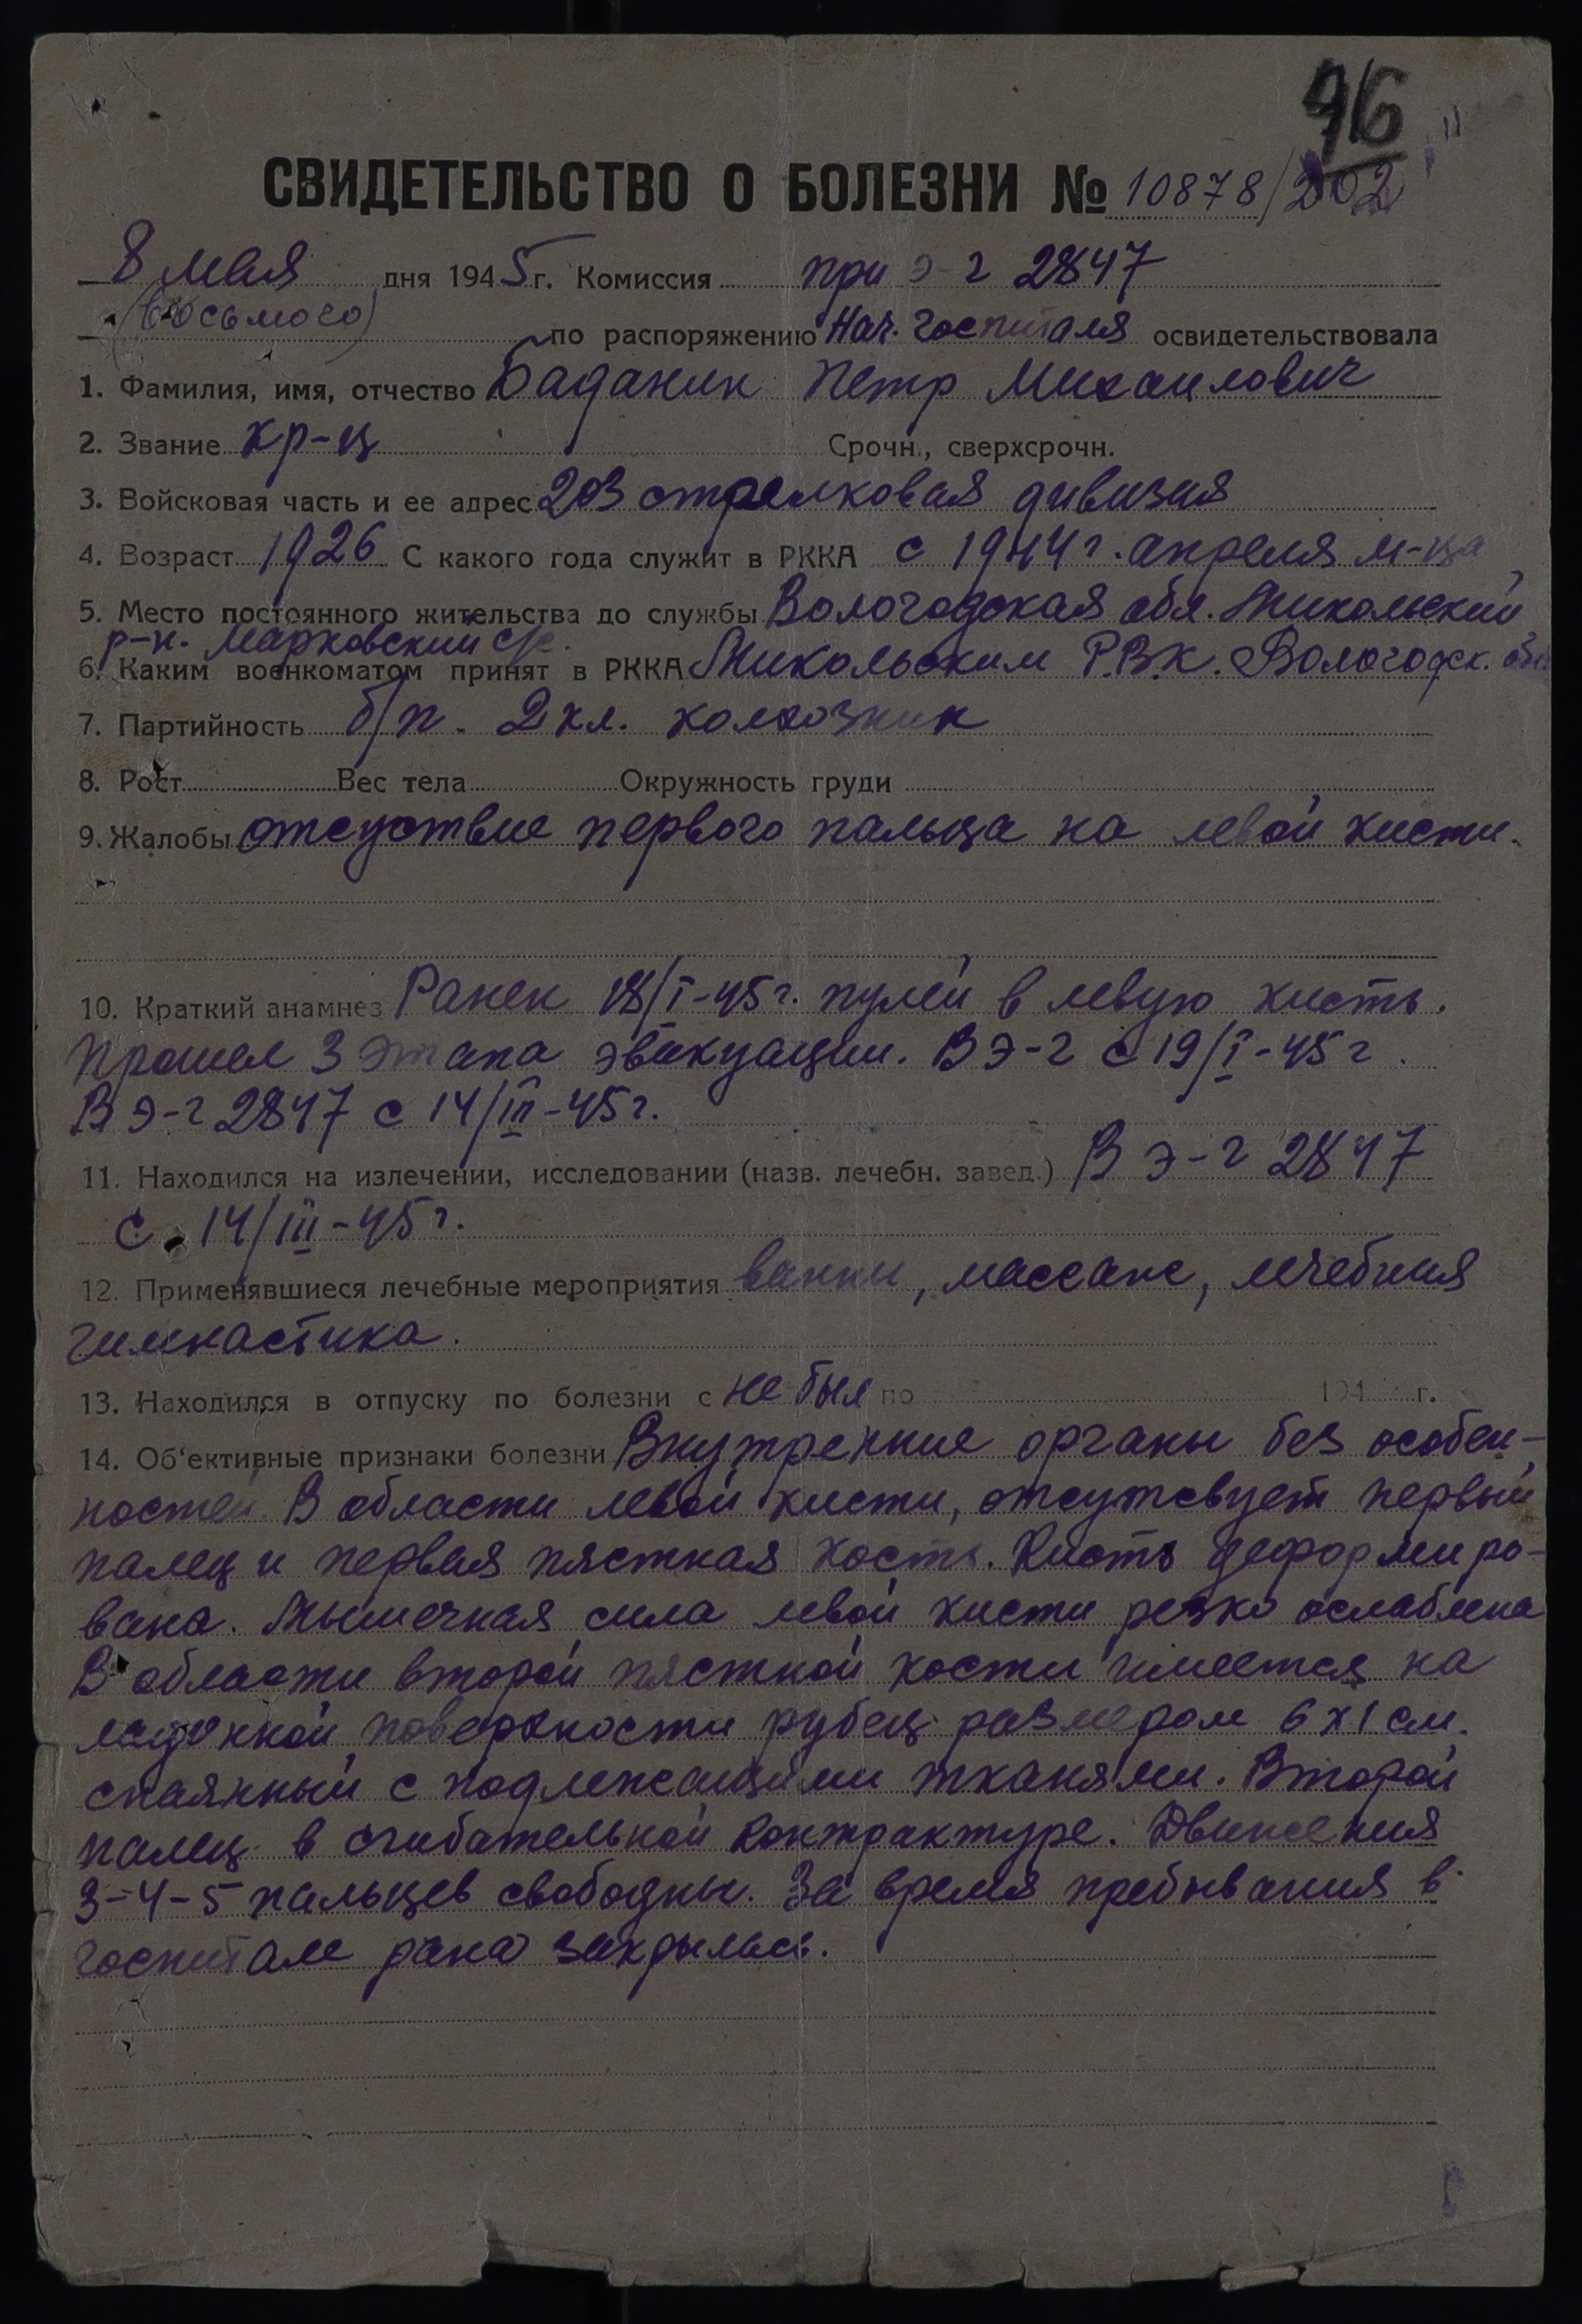 96
СВИДЕТЕЛЬСТВО О БОЛЕЗНИ № 10878/202
8 мая дня 1945 г. Комиссия при э-г 2847
(восьмого) по распоряжению Нач. госпиталя освидетельствовала
1. Фамилия, имя, отчество Баданин Петр Михаилович
2. Звание кр-ц Срочн., сверхсрочн.
3. Войсковая часть и ее адрес 203 стрелковая дивизия
4. Возраст 1926 С какого года служит в РККА с 1944 г. апреля м-ца
5. Место постоянного жительства до службы Вологодская обл. Никольский
р-н. Марковский с/с.
6. Каким военкоматом принят в РККА Никольским Р.В.К. Вологодск. обл.
7. Партийность б/п. 2 кл. колхозник
8. Рост Вес тела Окружность груди
9. Жалобы отсуствие первого пальца на левой кисти.
10. Краткий анамнез Ранен 18/I-45 г. пулей в левую кисть.
Прошел 3 этапа эвакуации. В э-г с 19/I-45 г.
В э-г 2847 с 14/III-45 г.
11. Находился на излечении, исследовании (назв. лечебн. завед.) В э-г 2847
с 14/III-45 г.
12. Применявшиеся лечебные мероприятия ванны, массаж, лечебная
гимнастика.
13. Находился в отпуску по болезни с не был по 194 г.
14. Об'ективные признаки болезни Внутренние органы без особен-
ностей. В области левой кисти, отсутсвует первый
палец и первая пястная кость. Кисть деформиро-
вана. Мышечная сила левой кисти резко ослаблена
В области второй пястной кости имеется на
ладонной поверхности рубец размером 6х1 см.
спаянный с подлежащими тканями. Второй
палец в сгибательной контрактуре. Движения
3-4-5 пальцев свободны. За время пребывания в
госпитале рана закрылась.